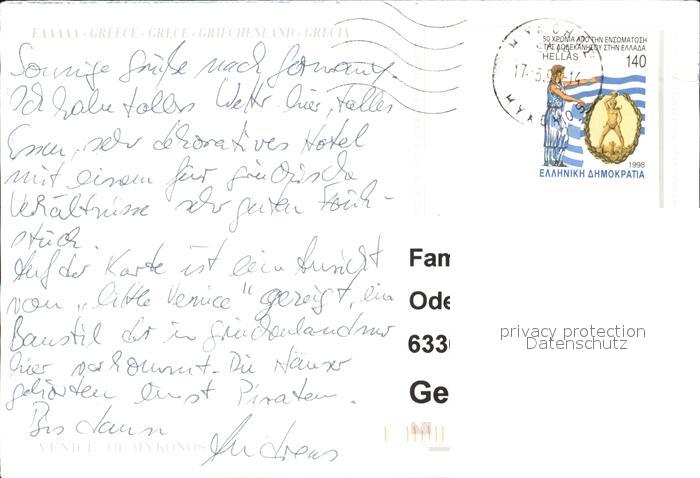 ΕΛΛΑΔΑ - GREECE - GRECE - GRIECHENLAND - GRECIA
Sonnige Grüße nach Germany
Ich habe tolles Wetter hier, tolles
Essen, sehr dekoratives Hotel
mit einem für griechische
Verhältnisse sehr guten Früh-
stück.
Auf der Karte ist eine Ansicht
von „little Venice" gezeigt, ein
Baustil der in Griechenland nur
hier vorkommt. Die Häuser
gehörten einst Piraten.
Bis dann
Andreas
VENICE OF MYKONOS
50 ΧΡΟΝΙΑ ΑΠΟ ΤΗΝ ΕΝΣΩΜΑΤΩΣΗ
ΤΗΣ ΔΩΔΕΚΑΝΗΣΟΥ ΣΤΗΝ ΕΛΛΑΔΑ
HELLAS 140
1998
ΕΛΛΗΝΙΚΗ ΔΗΜΟΚΡΑΤΙΑ
ΜΥΚΟΝΟΣ
Fam
Ode
633
Ge
privacy protection
Datenschutz